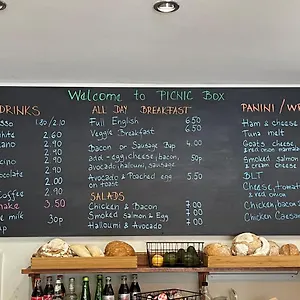 Welcome to PICNIC BOX
DRINKS
1.80/2.10
2.60
2.90
2.60
2.90
2.50
2.60
3.50
milk 30p
ALL DAY BREAKFAST
Full English 6.50
Veggie Breakfast 6.50
Bacon or Sausage Bap 4.00
add - egg, cheese, bacon, 50p
avocado, halloumi, sausage
Avocado & Poached egg 5.50
on toast
SALADS
Chicken & Bacon 7.00
Smoked salmon & Egg 7.00
Halloumi & Avocado 7.00
PANINI / 
Ham & cheese
Tuna melt
Goats cheese
& red onion marmala
Smoked salmon
& cream cheese
BLT
Cheese, tomato
& red onion
Chicken, bacon
Chicken Caesar